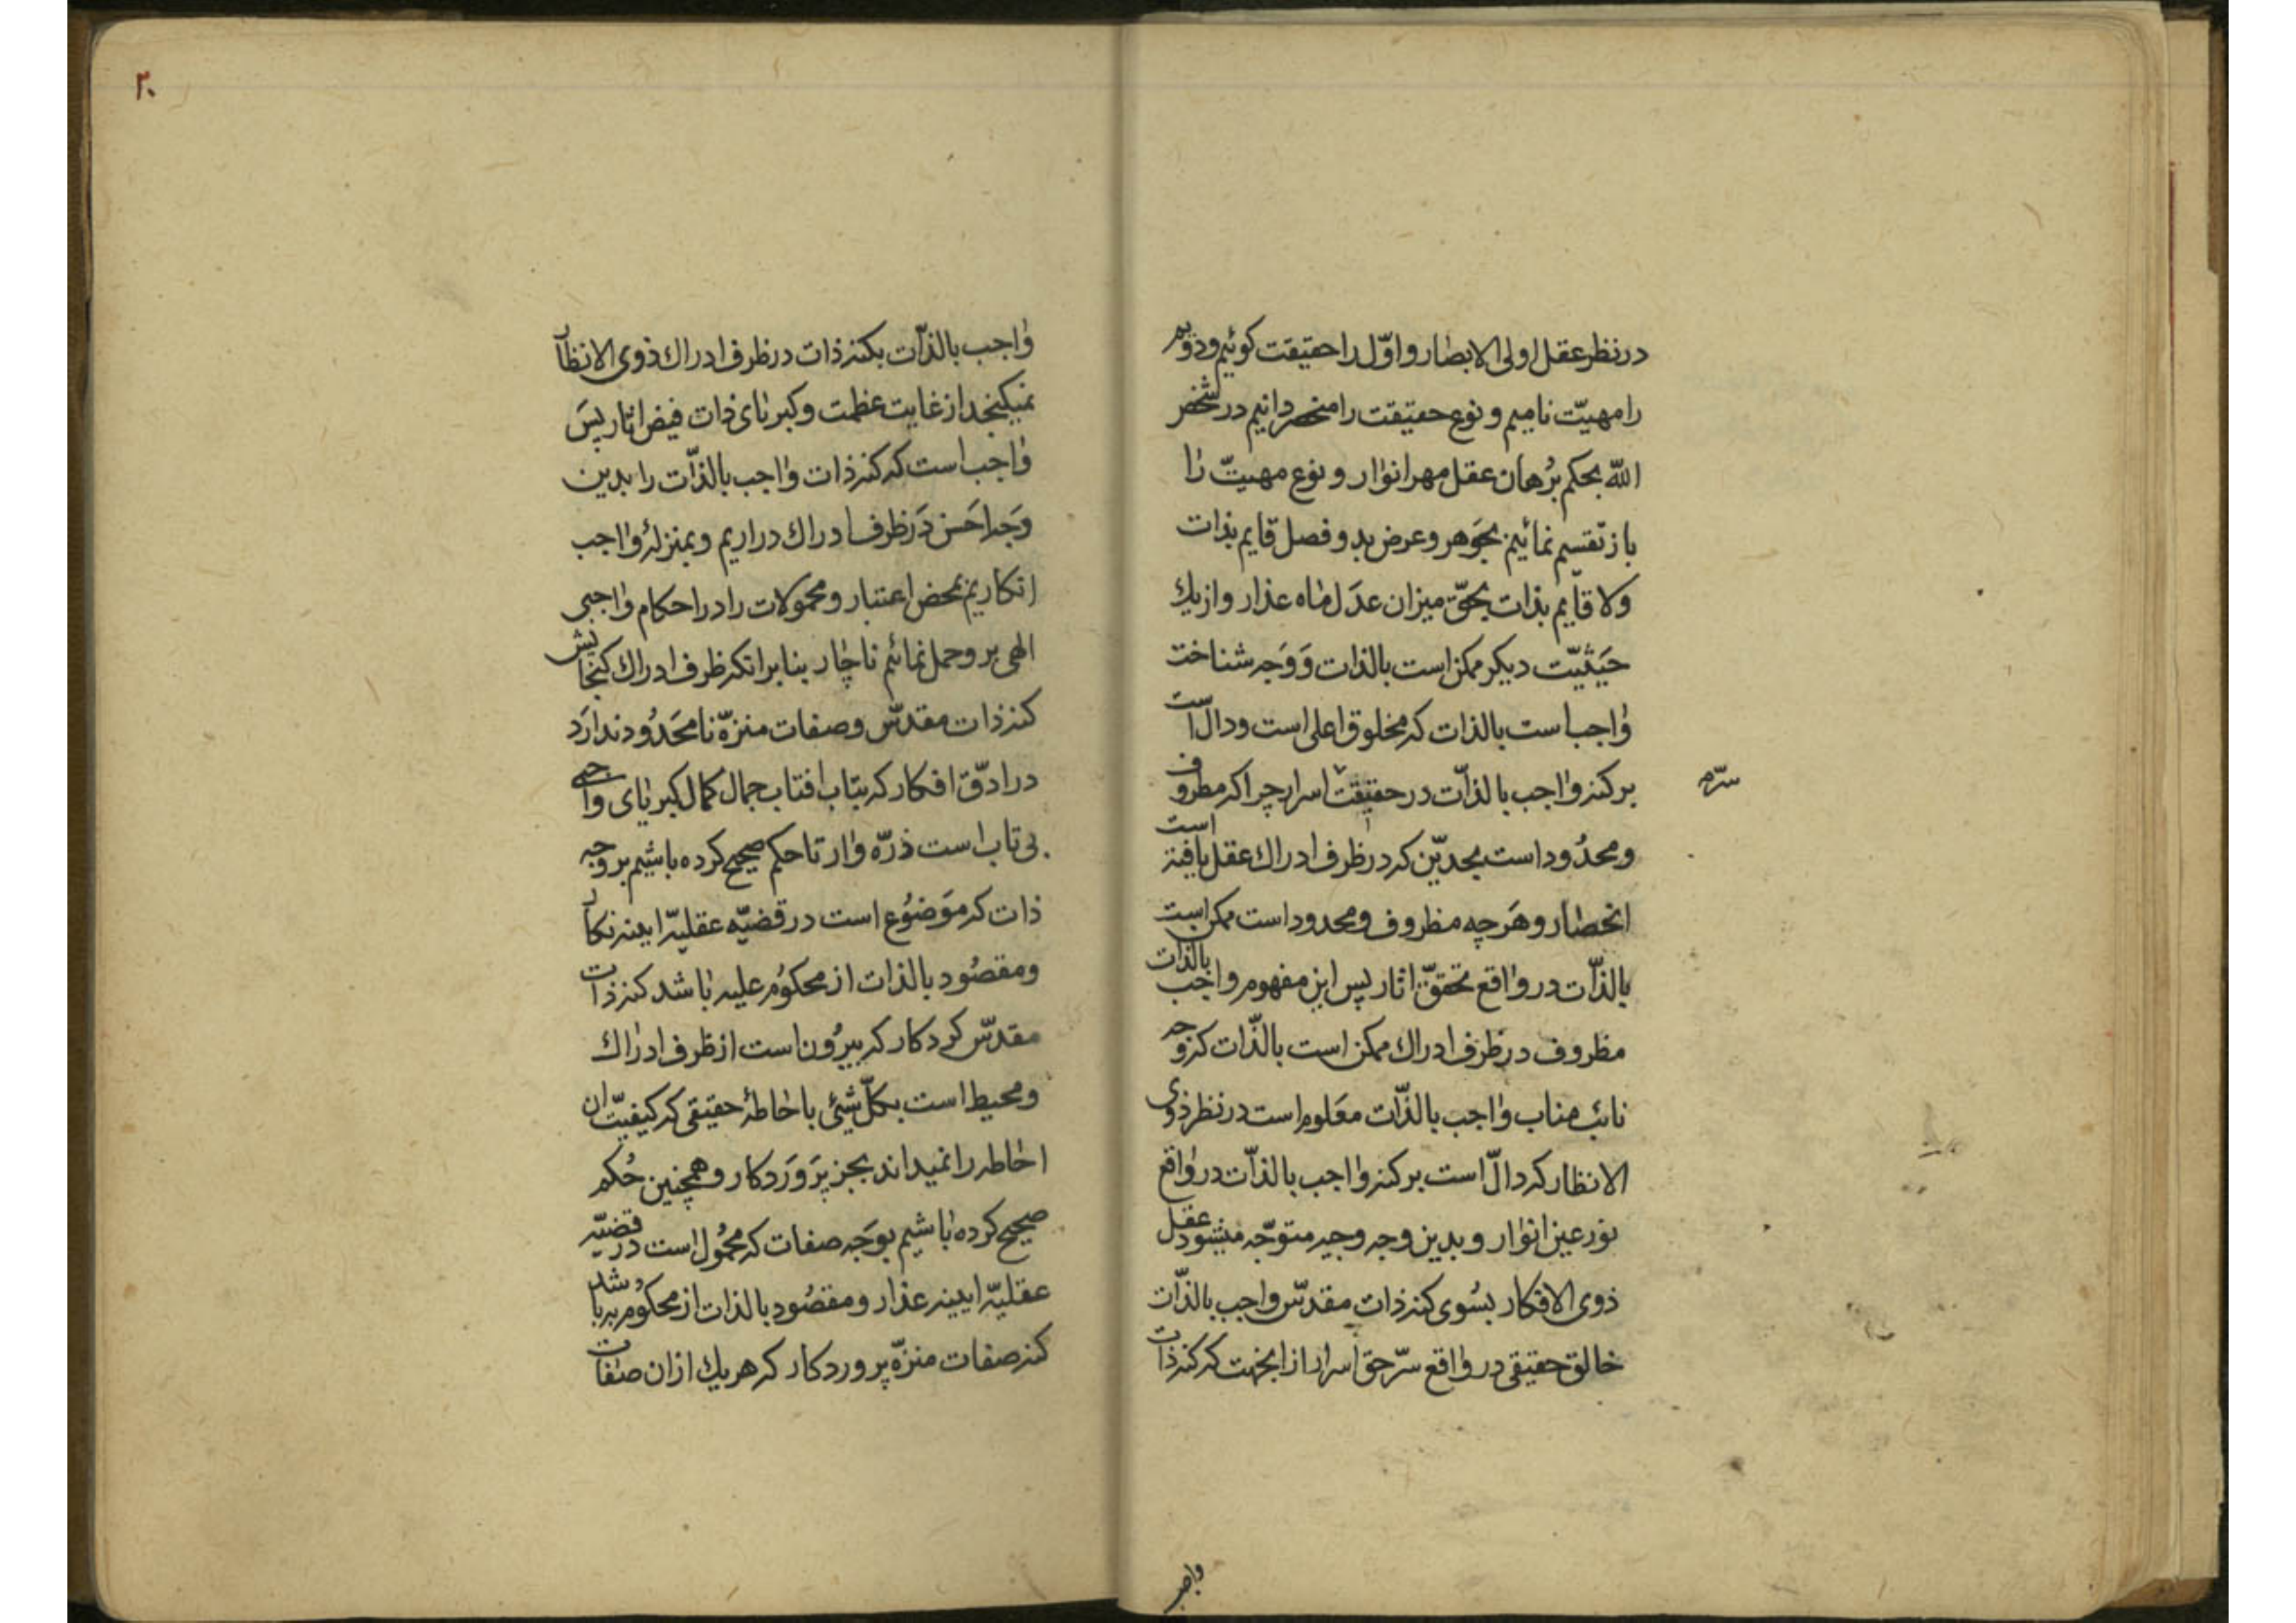 در نظر عقل اولی الابصار و اوّل را حقیقت کوئیم و دویم
را مهیّت نامیم و نوع حقیقت را منحصر دانیم در شخص
اللّه بحکم بُرهان عقل مهر انوار و نوع مهیّت را
باز تقسیم نمائیم بجَوهر و عرض بدو فصل قایم بذات
ولا قایم بذات بحقّ میزان عدَل ماه عذار و از یك
حَیثیّت دیکر ممکن است بالذات وَ وَجه شناخت
واجب است بالذات که مخلوق اعلی است و دالّ است
بر کنه واجب بالذّات در حقیقت اسرار چرا که مظروف
سرّم
و محدُود است بحدیّن که در ظرف ادراك عقل یافته است
انحصار و هَرچه مظروف و محدود است ممکن است
بالذّات در واقع تحقّق اثار پس این مفهوم واجب بالذات
مظروف در ظرف ادراك ممکن است بالذّات که وجه
نائب مناب واجب بالذّات معَلوم است در نظر ذوی
الانظار که دالّ است بر کنه واجب بالذّات در واقع
نور عین انوار و بدین وجه وجیه متوّجه میشود عقل
ذوی الافکار بسُوی کنه ذات مقدسّ واجب بالذّات
خالق حقیقی در واقع سرّ حق اسرار از انجهت که کنه ذات
واجب
۲۰
واجب بالذّات بکنه ذات در ظرف ادراك ذوی الانظار
نمیکنجد از غایت عظمت و کبریای ذات فیض اثار پسَ
واجب است که کنه ذات واجب بالذّات را بدین
وَجه احَسن دَر ظرف ادراك دراریم و بمنزلهٔ واجب
انکاریم بمحض اعتبار و محمولات را در احکام واجبی
الهی بر و حمل نمائیم ناچار بنا برانکه ظرف ادراك کنجایش
کنه ذات مقدسّ و صفات منزّه نا محَدُود ندارَد
در ادقّ افکار که بتاب افتاب جمال کمال کبریای واجبی
بی تاب است ذرّه وار تا حکم صحیح کرده باشیم بر وجه
ذات که موَضوُع است در قضیّه عقلیّه ایینه نکار
و مقصُود بالذات از محکوُم علیه باشد کنه ذات
مقدسّ کردکار که بیرُون است از ظرف ادراك
و محیط است بکلّ شیئی باحاطهٔ حقیقی که کیفیّت ان
احاطه را نمیداند بجز پرَوَردکار و همچنین حُکم
صحیح کرده باشیم بوَجه صفات که محمُول است در قضیّه
عقلیّه ایینه عذار و مقصُود بالذات از محکوُم به باشد
کنه صفات منزّه پروردکار که هریك ازان صفات